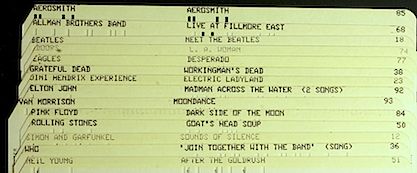 AEROSMITH AEROSMITH 85
ALLMAN BROTHERS BAND LIVE AT FILLMORE EAST 68
BEATLES MEET THE BEATLES 18
DOORS L. A. WOMAN 74
EAGLES DESPERADO 77
GRATEFUL DEAD WORKINGMAN'S DEAD 38
JIMI HENDRIX EXPERIENCE ELECTRIC LADYLAND 23
ELTON JOHN MADMAN ACROSS THE WATER (2 SONGS) 92
VAN MORRISON MOONDANCE 93
PINK FLOYD DARK SIDE OF THE MOON 84
ROLLING STONES GOAT'S HEAD SOUP 50
SIMON AND GARFUNKEL SOUNDS OF SILENCE 12
WHO 'JOIN TOGETHER WITH THE BAND' (SONG) 36
NEIL YOUNG AFTER THE GOLDRUSH 51